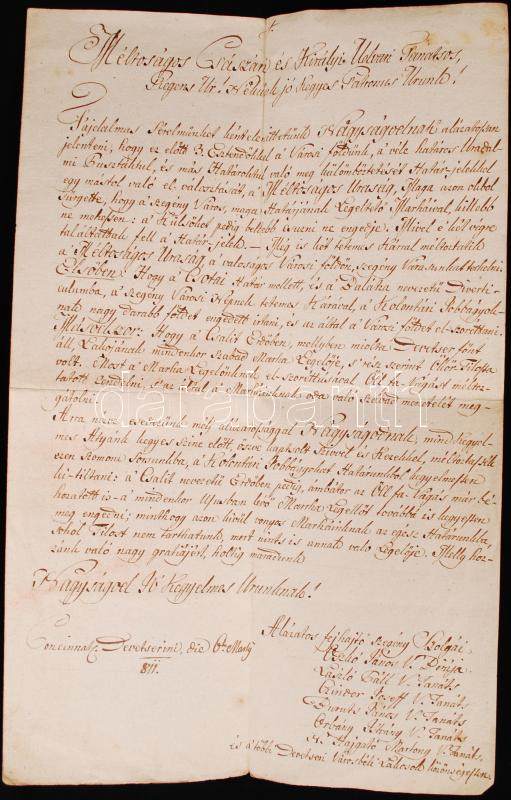 Méltóságos Császári és Királyi Udvari Tanátsos,
Regens Úr! Nékünk jó Kegyes Patronus Urunk!
Fájdalmas Sérelmünket kéntelenittetünk Nagyságodnak alázatossan
jelenteni, hogy ez előtt 3 Esztendőkkel a Városi földünk, a véle határos Uradal-
mi Pusztáktul, és más Határoktul való meg külömböztetését Határ-jelekkel
egy mástol való el választását, a Méltóságos Uraság, Maga azon okbol
sürgette, hogy a Szegény Város, maga Határjának Legeltető Márháival, küllebb
ne mehessen: a Külsőket pedig bellebb ne engedje. Mivel a két végre
találtattak fell a Határ-jelek.
a Méltóságos Uraság a valóságos Városi földön, szegény Városunkat terhelni.
Elsőben: Hogy a Csótai Határ mellett, és a Dalaka nevezetű Diverti-
culumba, a szegény Városi Népnek tetemes Kárával, a Kolontári Jobbágyok-
nak nagy darabb földet engedett irtani, és az által a Városi földet el szoréttani.
Másodszor: Hogy a Csalit Erdőben, mellyben mióta Devetser fönt
áll, Lakosának mindenkor szabad Marha Legelője, s rész szerint Ökör Tilossa
volt. Most a Marha Legelőnknek el szoréttásával Öll fa vágást mélt-
tatott tsinálni, s az által a Marháinknak oda való szabad menetelét meg-
gátolni.
Arra nézve esedezünk mély alázatossággal Nagyságodnak, mind Kegyel-
mes Atyánk kegyes szine előtt, öszve kaptsolt Szivvel és Kezekkel, méltóztassék
ezen szomorú Sorsunkba, a Kolontári Jobbágyokot Határunkbol kegyelmessen
ki-tiltani: a Csalit nevezetű Erdőben pedig, ámbátor az Öll fa vágás már bé-
hozatott is a mindenkor Ususban lévő Marha Legellőt továbbá is kegyessen
meg engedni; minthogy azon kívül vonyos Marháinknak az egész Határunkba
sohol Tilost nem tarthatunk, mert nints is annak való Legelője. Melly hoz-
zánk való nagy gratiáját, holtig maradunk
Nagyságod Jó Kegyelmes Urunknak!
Devetserini, die 6a Maty
811.
Alázatos fejhajtó szegény Szolgái
János V. Birája
László Páll V. Tanáts
Ginder Joseff V. Tanáts
János V. Tanáts
Orbány V. Tanáts
Hajgató Martony V. Tanáts,
és a többi Devetseri Városbéli Lakosok közönségessen.
darabanth